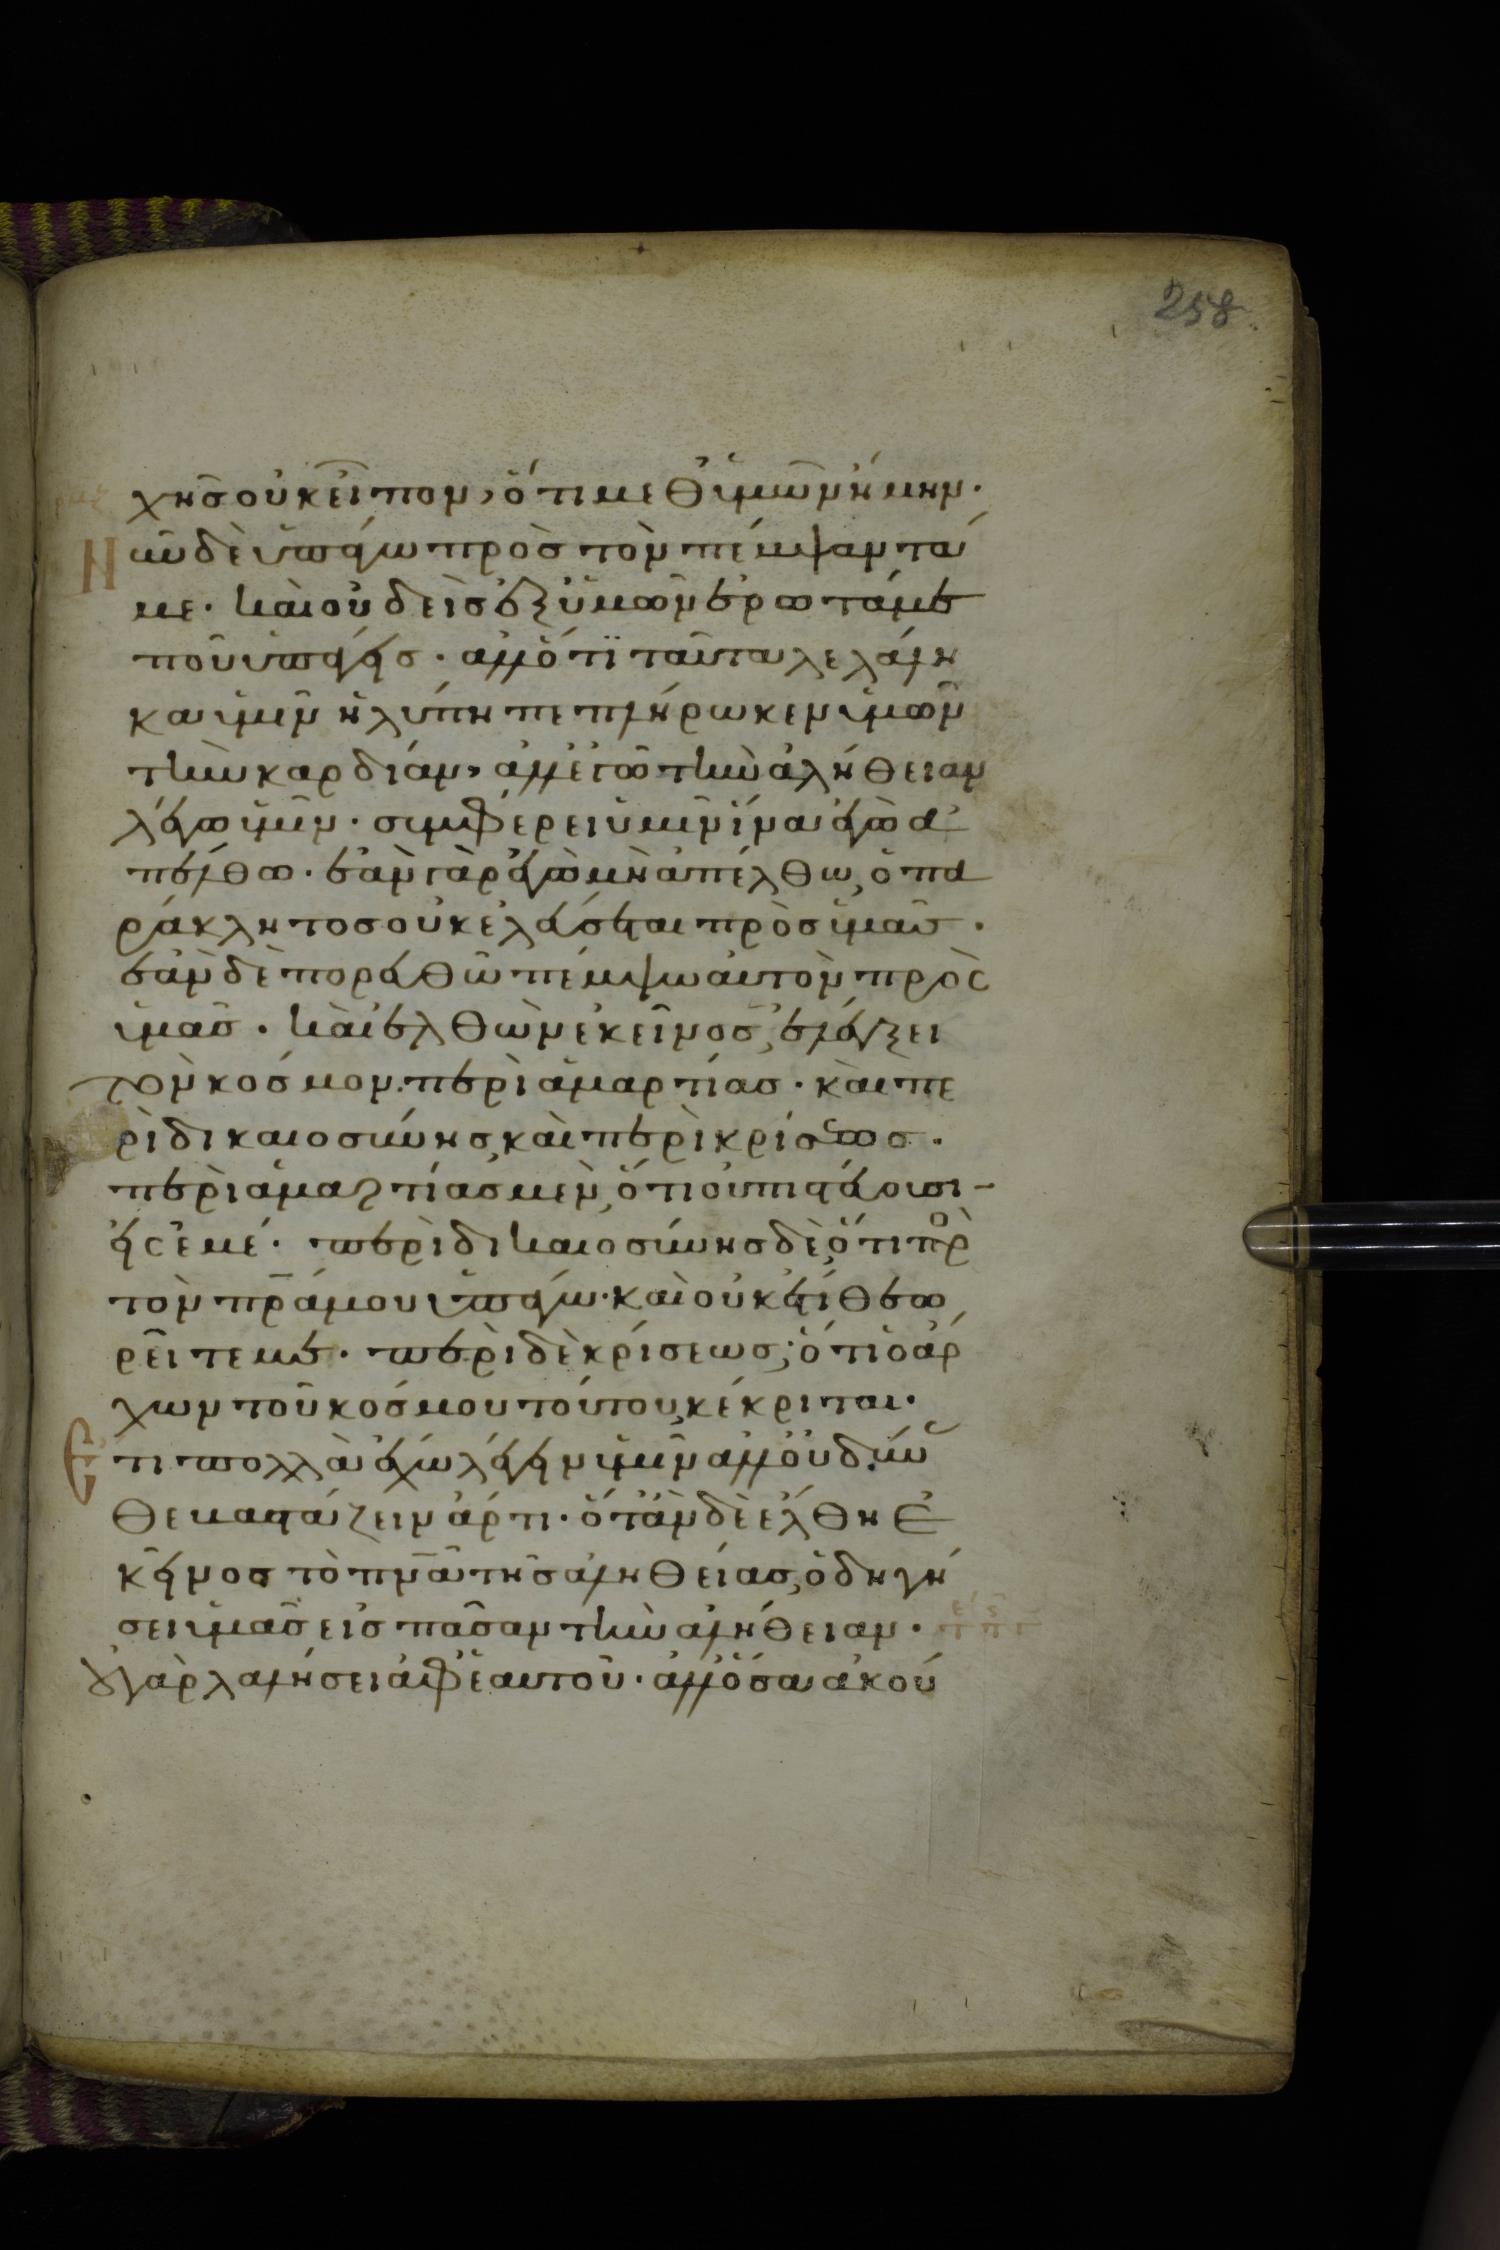 258
χῆς οὐκ εἶπον, ὅτι μεθ ὑμῶν ἤμην·
Νῦν δὲ ὑπάγω πρὸς τὸν πέμψαντά
με· καὶ οὐδεὶς ἐξ ὑμῶν ἐρωτᾶ με
ποῦ ὑπάγεις· ἀλλ ὅτι ταῦτα λελάλη
κα ὑμῖν ἡ λύπη πεπλήρωκεν ὑμῶν
τὴν καρδίαν, ἀλλ ἐγὼ τὴν ἀλήθειαν
λέγω ὑμῖν· συμφέρει ὑμῖν ἵνα ἐγὼ ἀ
πέλθω· ἐὰν γὰρ ἐγὼ μὴ ἀπέλθω, ὁ πα
ράκλητος οὐκ ἐλεύσεται πρὸς ὑμᾶς·
ἐὰν δὲ πορευθῶ πέμψω αὐτὸν πρὸς
ὑμᾶς· καὶ ἐλθὼν ἐκεῖνος, ἐλέγξει
τὸν κόσμον· περὶ ἁμαρτίας· καὶ πε
ρὶ δικαιοσύνης, καὶ περὶ κρίσεως·
περὶ ἁμαρτίας μὲν, ὅτι οὐ πιστεύουσι-
εἰς ἐμέ· περὶ δικαιοσύνης δὲ ὅτι πρὸ
τὸν πρα μου ὑπάγω· καὶ οὐκ ἔτι θεω
ρεῖτε με· περὶ δὲ κρίσεως, ὅτι ὁ ἄρ
χων τοῦ κόσμου τούτου, κέκριται·
Ἔτι πολλὰ ἔχω λέγειν ὑμῖν ἀλλ οὐ δύνα
σθε βαστάζειν ἄρτι· ὅτ ἂν δὲ ἔλθη ἐ
κεῖνος τὸ πνα τῆς ἀληθείας, ὁδηγή
σει ὑμᾶς εἰς πᾶσαν τὴν ἀλήθειαν·
οὐ γὰρ λαλήσει ἀφ ἑαυτοῦ· ἀλλ ὅσα ἀκού